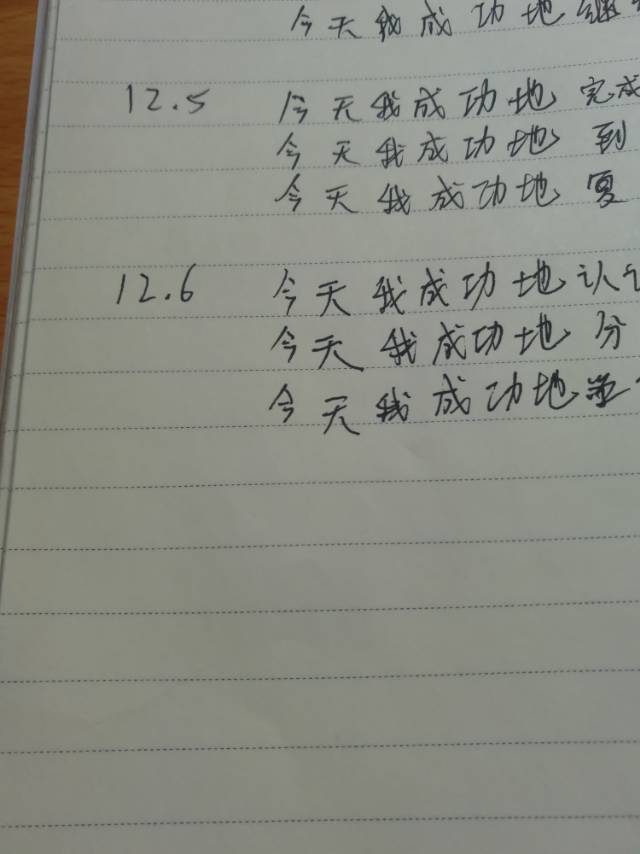 今天我成功地继
12.5 今天我成功地完成
今天我成功地到
今天我成功地复
12.6 今天我成功地认
今天我成功地分
今天我成功地学